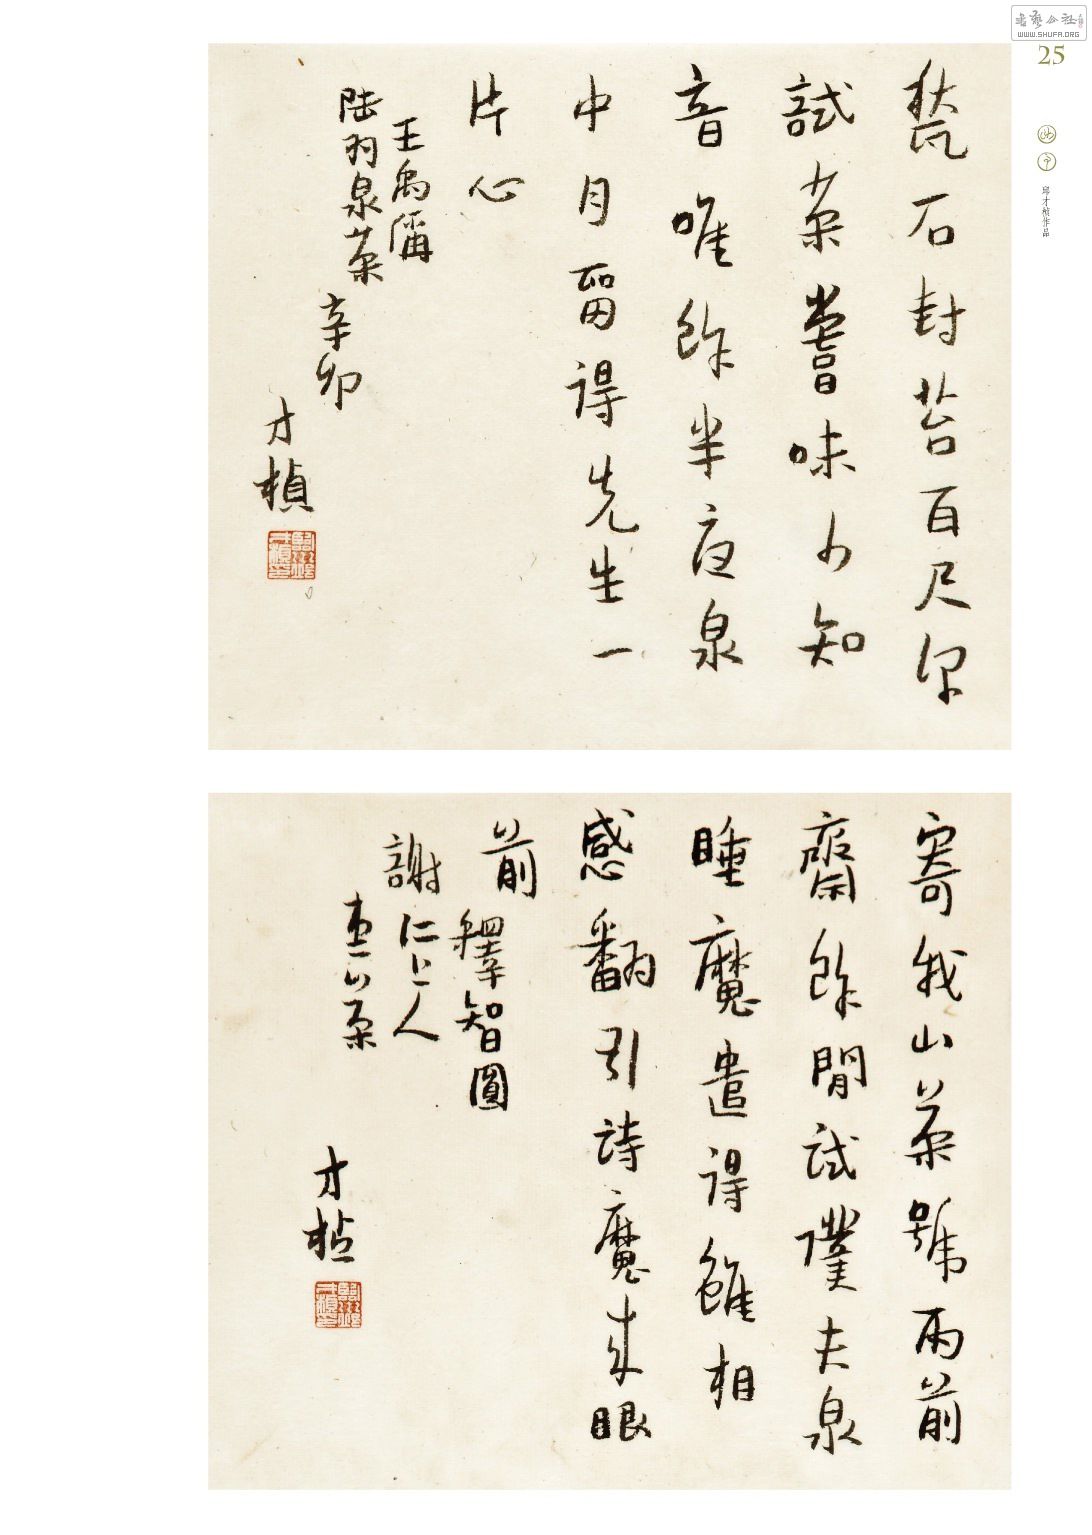 書藝公社
WWW.SHUFA.ORG
25
邱才桢作品
甃石封苔百尺深
試茶嘗味少知
音唯餘半夜泉
中月畱得先生一
片心
王禹偁
陸羽泉茶
辛卯
才楨
寄我山茶號雨前
齋餘閒試僕夫泉
睡魔遣得雖相
感翻引詩魔來眼
前 釋智圓
謝仁上人
惠茶
才楨